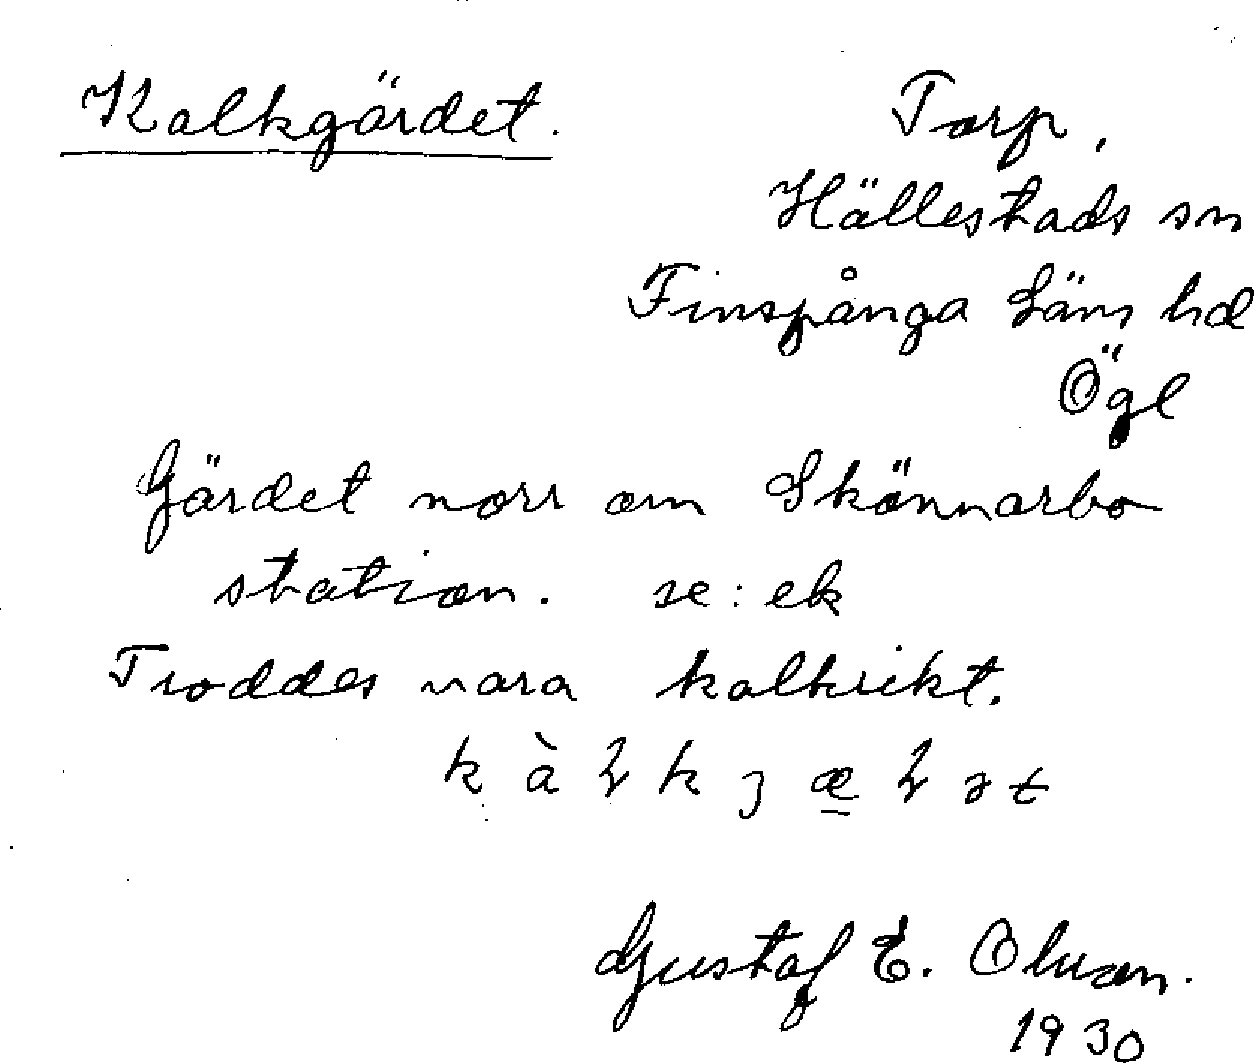 Kalkgärdet.
Torp,
Hällestads sn
Finspånga Läns hd
Ögl
Gärdet norr om Skönnarbo
station. se: ek
Troddes vara kalkrikt.
Gustaf E. Olsson.
1930